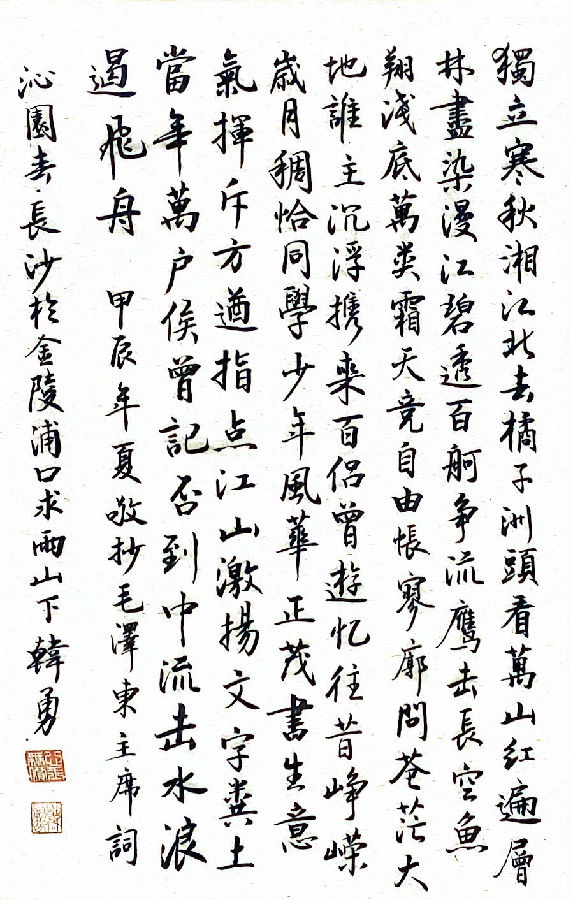 獨立寒秋湘江北去橘子洲頭看萬山红遍層
林盡染漫江碧透百舸争流鹰击長空魚
翔浅底萬类霜天竞自由怅寥廓问苍茫大
地誰主沉浮携来百侣曾遊忆往昔峥嵘
歲月稠恰同學少年風華正茂書生意
氣揮斥方遒指点江山激揚文字粪土
當年萬户侯曾記否到中流击水浪
遏飛舟 甲辰年夏敬抄毛澤東主席詞
沁園春長沙於金陵浦口求雨山下韓勇